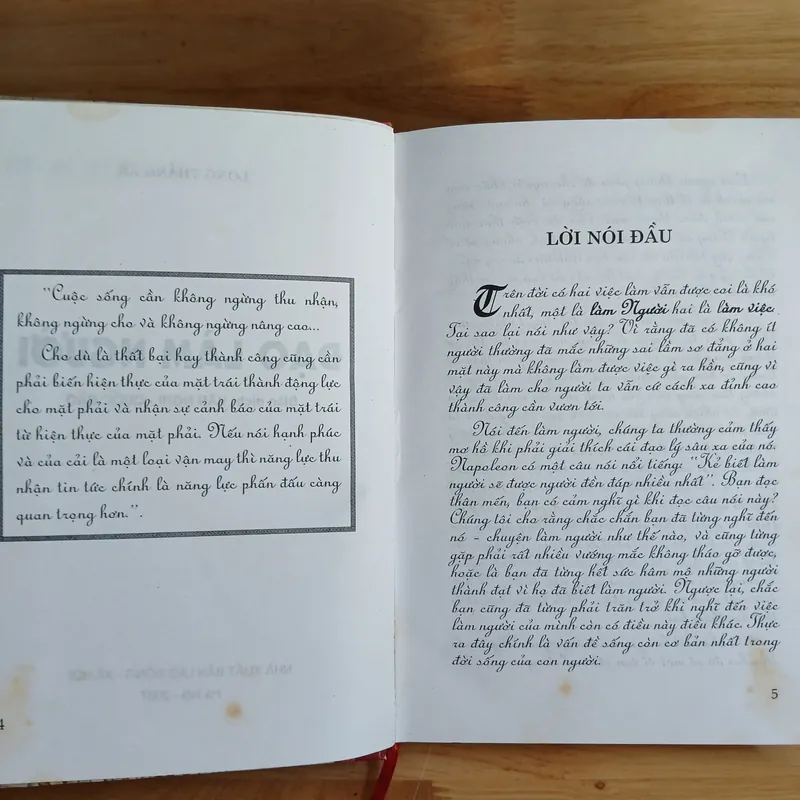 "Cuộc sống cần không ngừng thu nhận,
không ngừng cho và không ngừng nâng cao...
Cho dù là thất bại hay thành công cũng cần
phải biến hiện thực của mặt trái thành động lực
cho mặt phải và nhận sự cảnh báo của mặt trái
từ hiện thực của mặt phải. Nếu nói hạnh phúc
và của cải là một loại vận may thì năng lực thu
nhận tin tức chính là năng lực phấn đấu càng
quan trọng hơn.".
4
LỜI NÓI ĐẦU
Trên đời có hai việc làm vẫn được coi là khó
nhất, một là làm Người hai là làm việc.
Tại sao lại nói như vậy? Vì rằng đã có không ít
người thường đã mắc những sai lầm sơ đẳng ở hai
mặt này mà không làm được việc gì ra hồn, cũng vì
vậy đã làm cho người ta vẫn cứ cách xa đỉnh cao
thành công cần vươn tới.
Nói đến làm người, chúng ta thường cảm thấy
mơ hồ khi phải giải thích cái đạo lý sâu xa của nó.
Napoleon có một câu nói nổi tiếng: "Kẻ biết làm
người sẽ được người đền đáp nhiều nhất". Bạn đọc
thân mến, bạn có cảm nghĩ gì khi đọc câu nói này?
Chúng tôi cho rằng chắc chắn bạn đã từng nghĩ đến
nó - chuyện làm người như thế nào, và cũng từng
gặp phải rất nhiều vướng mắc không tháo gỡ được,
hoặc là bạn đã từng hết sức hâm mộ những người
thành đạt vì họ đã biết làm người. Ngược lại, chắc
bạn cũng đã từng phải trăn trở khi nghĩ đến việc
làm người của mình còn có điều này điều khác. Thực
ra đây chính là vấn đề sống còn cơ bản nhất trong
đời sống của con người.
5